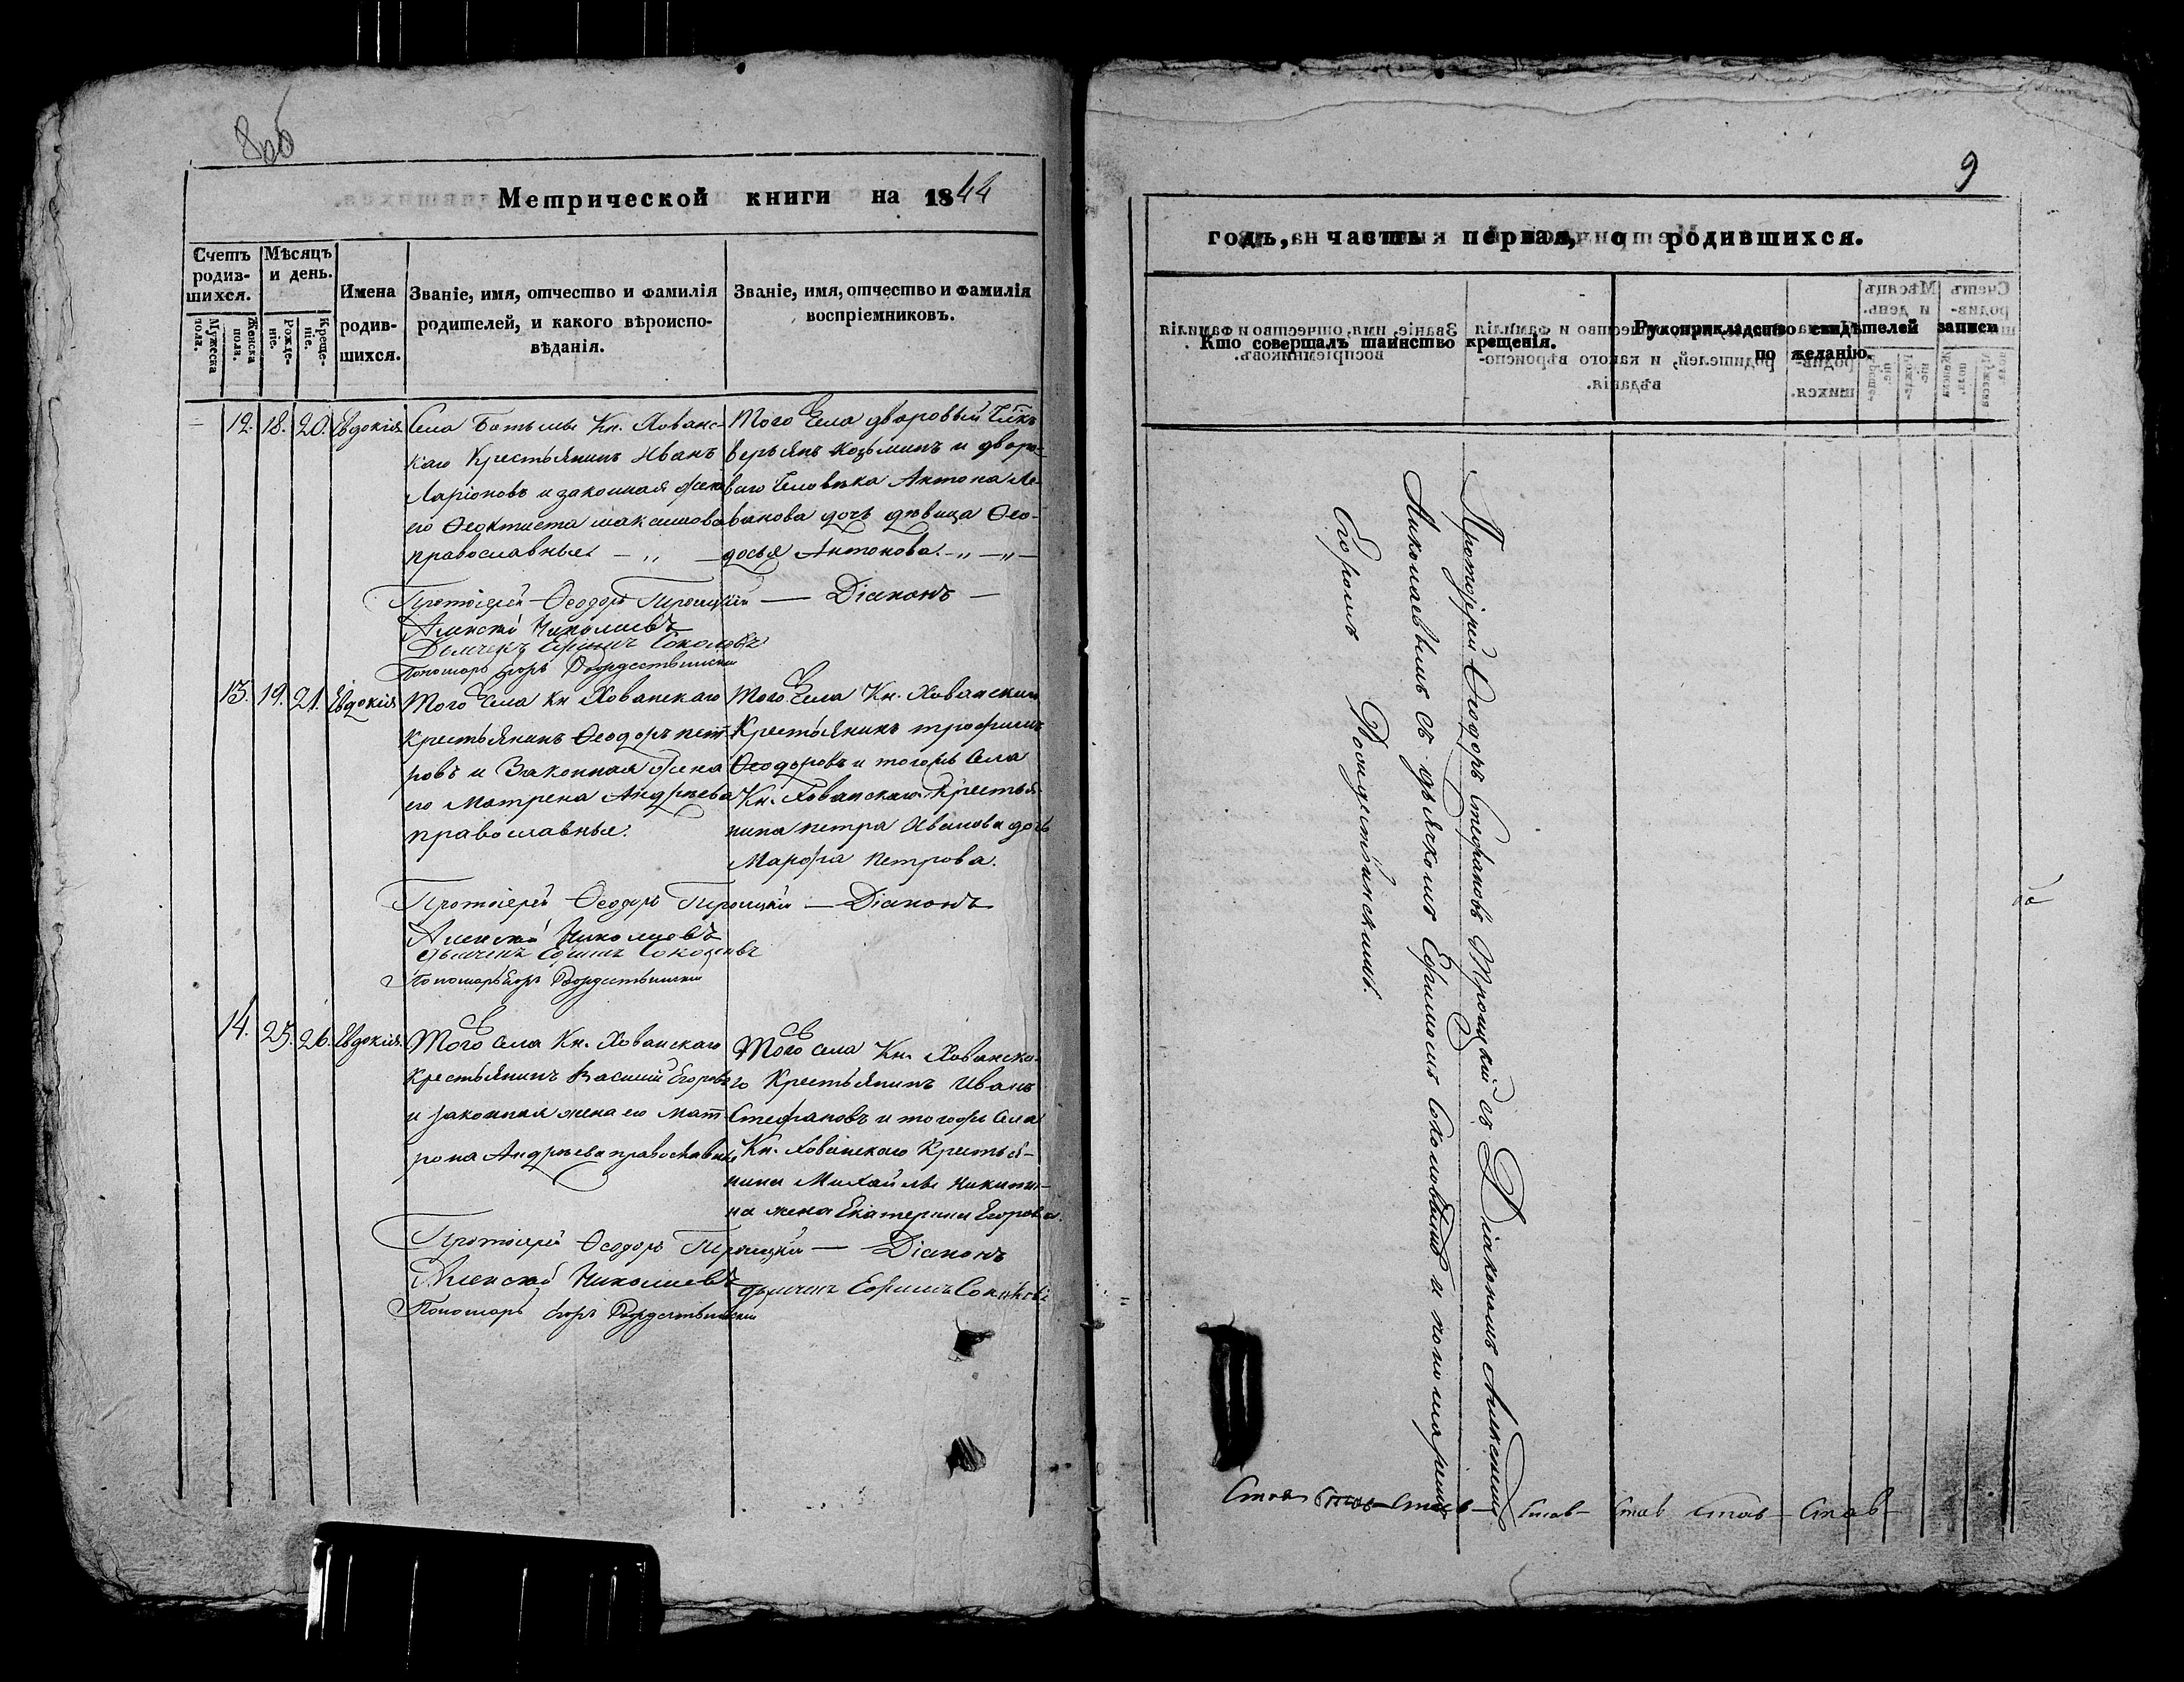 8 об
Метрической книги на 1844
Счетъ родив-шихся.
Мужеска пола.
Женска пола.
Мѣсяцъ и день.
Рожде-ніе.
Креще-ніе.
Имена родив-шихся.
Званіе, имя, отчество и фамилія родителей, и какого вѣроиспо-вѣданія.
Званіе, имя, отчество и фамилія воспріемниковъ.
12. 18. 20. Евдокія
Села Кн. Хованс-
каго Крестьянинъ Иванъ
Ларіоновъ и законная жена
его Феоктиста максимова
православные.
Того Села дворовый
Козьминъ и дворо-
ваго человѣка Антона
дочь дѣвица Ѳео-
досья Антонова.
Протоіерей Ѳеодоръ Троицкій — Діаконъ —
Алексѣй Николаевъ
Дьячекъ Ефимъ Соколовъ
Пономарь Егоръ Рождественскій
13. 19. 21. Евдокія
Того Села Кн Хованскаго
Крестьянинъ Ѳеодоръ пет-
ровъ и Законная жена
его Матрена Андреева
православные.
Того Села Кн. Хованскаго
Крестьянинъ трофимъ
Ѳеодоровъ и тогожъ Села
Кн. Хованскаго Крестья-
нина петра Иванова дочь
Марфа петрова.
Протоіерей Ѳеодоръ Троицкій — Діаконъ
Алексѣй Николаевъ
дьячекъ Ефимъ Соколовъ
Пономарь Егоръ Рождественскій
14. 25. 26. Евдокія.
Того Села Кн. Хованскаго
Крестьянинъ Василій Егоровъ
и законная жена его Мат-
рона Андреева православные
Того села Кн. Хованска-
го Крестьянинъ Иванъ
Стефановъ и тогожъ Села
Кн. Хованскаго Крестья-
нина Михайлы Никити-
на жена Екатерина Егорова.
Протоіерей Ѳеодоръ Троицкій — Діаконъ
Алексѣй Николаевъ
дьячекъ Ефимъ Соколовъ
Пономарь Егоръ Рождественскій
9
годъ, часть первая, о родившихся.
Кто совершалъ таинство крещенія.
Рукоприкладство свидѣтелей записи по желанію.
Протоіерей Ѳеодоръ Стефановъ Троицкій съ Діакономъ Алексѣемъ
Николаевымъ съ дьячкомъ Ефимомъ Соколовымъ и пономаремъ
Егоромъ Рождественскимъ.